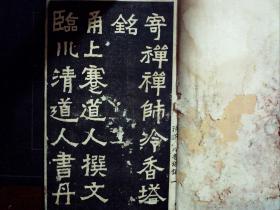 寄禪禪師冷香塔
銘
甬上蹇道人撰文
臨川清道人書丹